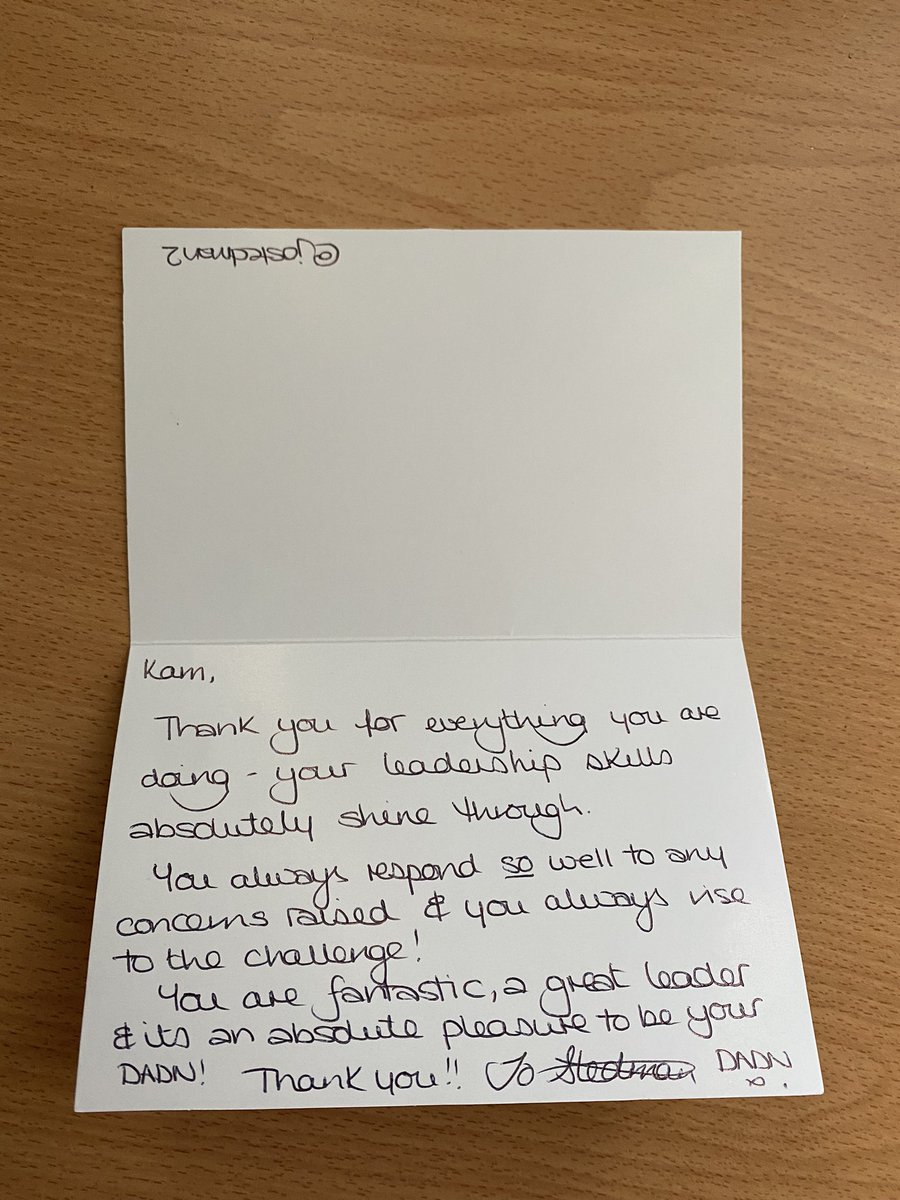 @jostedman2
Kam,
Thank you for everything you are
doing - your leadership skills
absolutely shine through.
You always respond so well to any
concerns raised & you always rise
to the challenge!
You are fantastic, a great leader
& its an absolute pleasure to be your
DADN! Thank you!! Jo Stedman DADN
x !